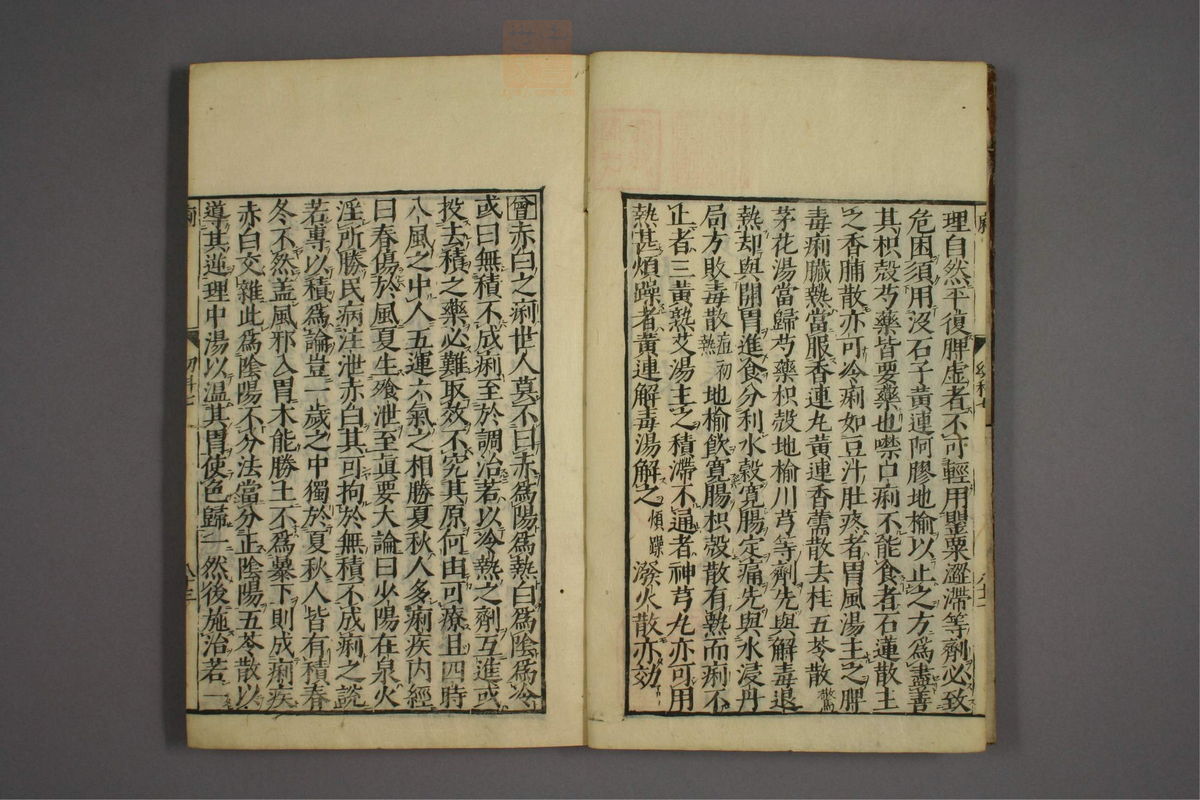 理自然平復脾虛者不可輕用罌粟澀滯等劑必致
危困須用沒石子黃連阿膠地榆以止之方爲盡善
其枳殼芍藥皆要藥也噤口痢不能食者石蓮散主
之香脯散亦可冷痢如豆汁肚疼者胃風湯主之脾
毒痢臟熱當服香連丸黃連香薷散去桂五苓散驚
茅花湯當歸芍藥枳殼地榆川芎等劑先與解毒退
熱却與開胃進食分利水穀寬腸定痛先與水浸丹
局方敗毒散痘初熱地榆飲寬腸枳殼散有熱而痢不
止者三黃熟艾湯主之積滯不通者神芎丸亦可用
熱甚煩躁者黃連解毒湯解之煩躁潑火散亦効
曾赤白之痢世人莫不曰赤爲陽爲熱白爲陰爲冷
或曰無積不成痢至於調治若以冷熱之劑互進或
投去積之藥必難取效不究其原何由可療且四時
八風之中人五運六氣之相勝夏秋人多痢疾內經
曰春傷於風夏生飱泄至眞要大論曰少陽在泉火
淫所勝民病注泄赤白其可拘於無積不成痢之說
若專以積爲論豈一歲之中獨於夏秋人皆有積春
冬不然盖風邪入胃木能勝土不爲暴下則成痢疾
赤白交雜此爲陰陽不分法當分正陰陽五苓散以
導其逆理中湯以溫其胃使色歸一然後施治若一